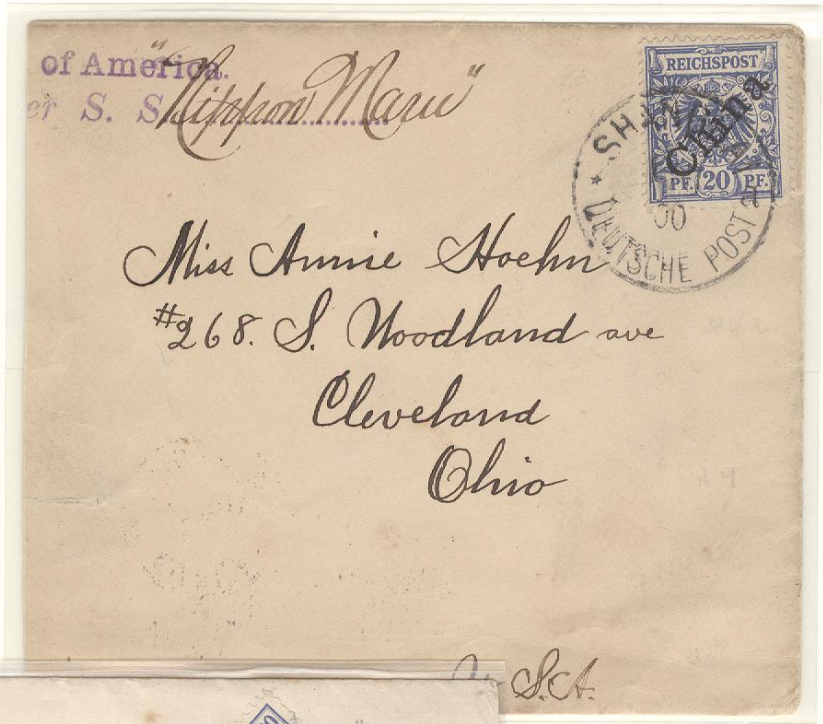 of America.
er S. S. "Nippon Maru"
REICHSPOST
China
PF. 20 PF.
SHA
00
DEUTSCHE POST
Miss Annie Hoehn
#268. S. Woodland ave
Cleveland
Ohio
U.S.A.